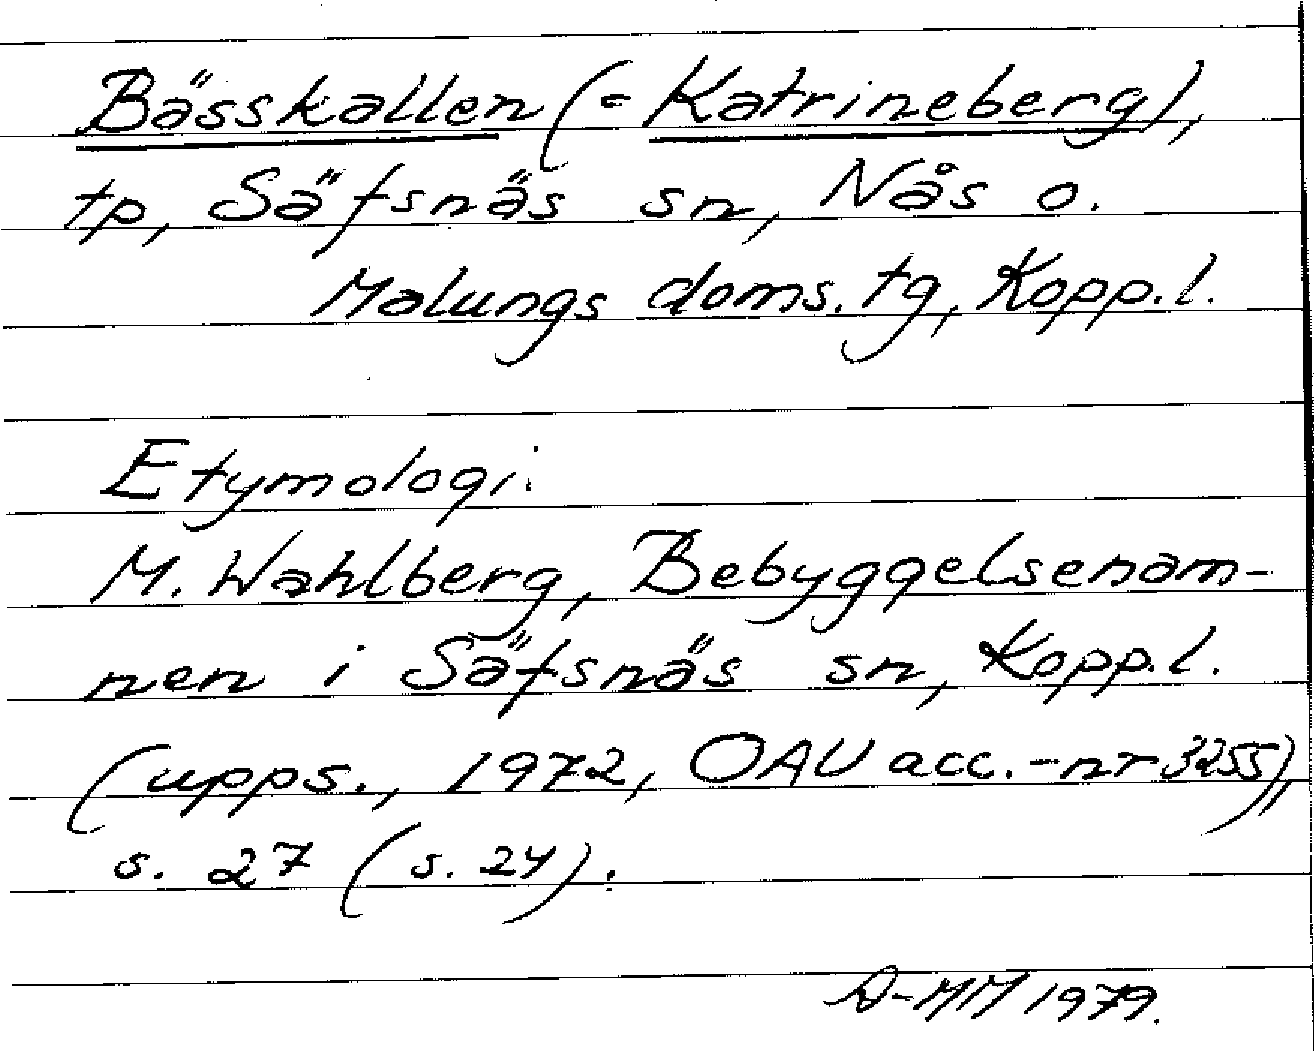 Bässkallen (= Katrineberg),
tp, Säfsnäs sn, Nås o.
Malungs doms. tg, Kopp. l.
Etymologi.
M. Wahlberg, Bebyggelsenam-
nen i Säfsnäs sn, Kopp. l.
(upps., 1972, OAU acc.-nr 3255),
s. 27 (s. 24).
D-MM 1979.